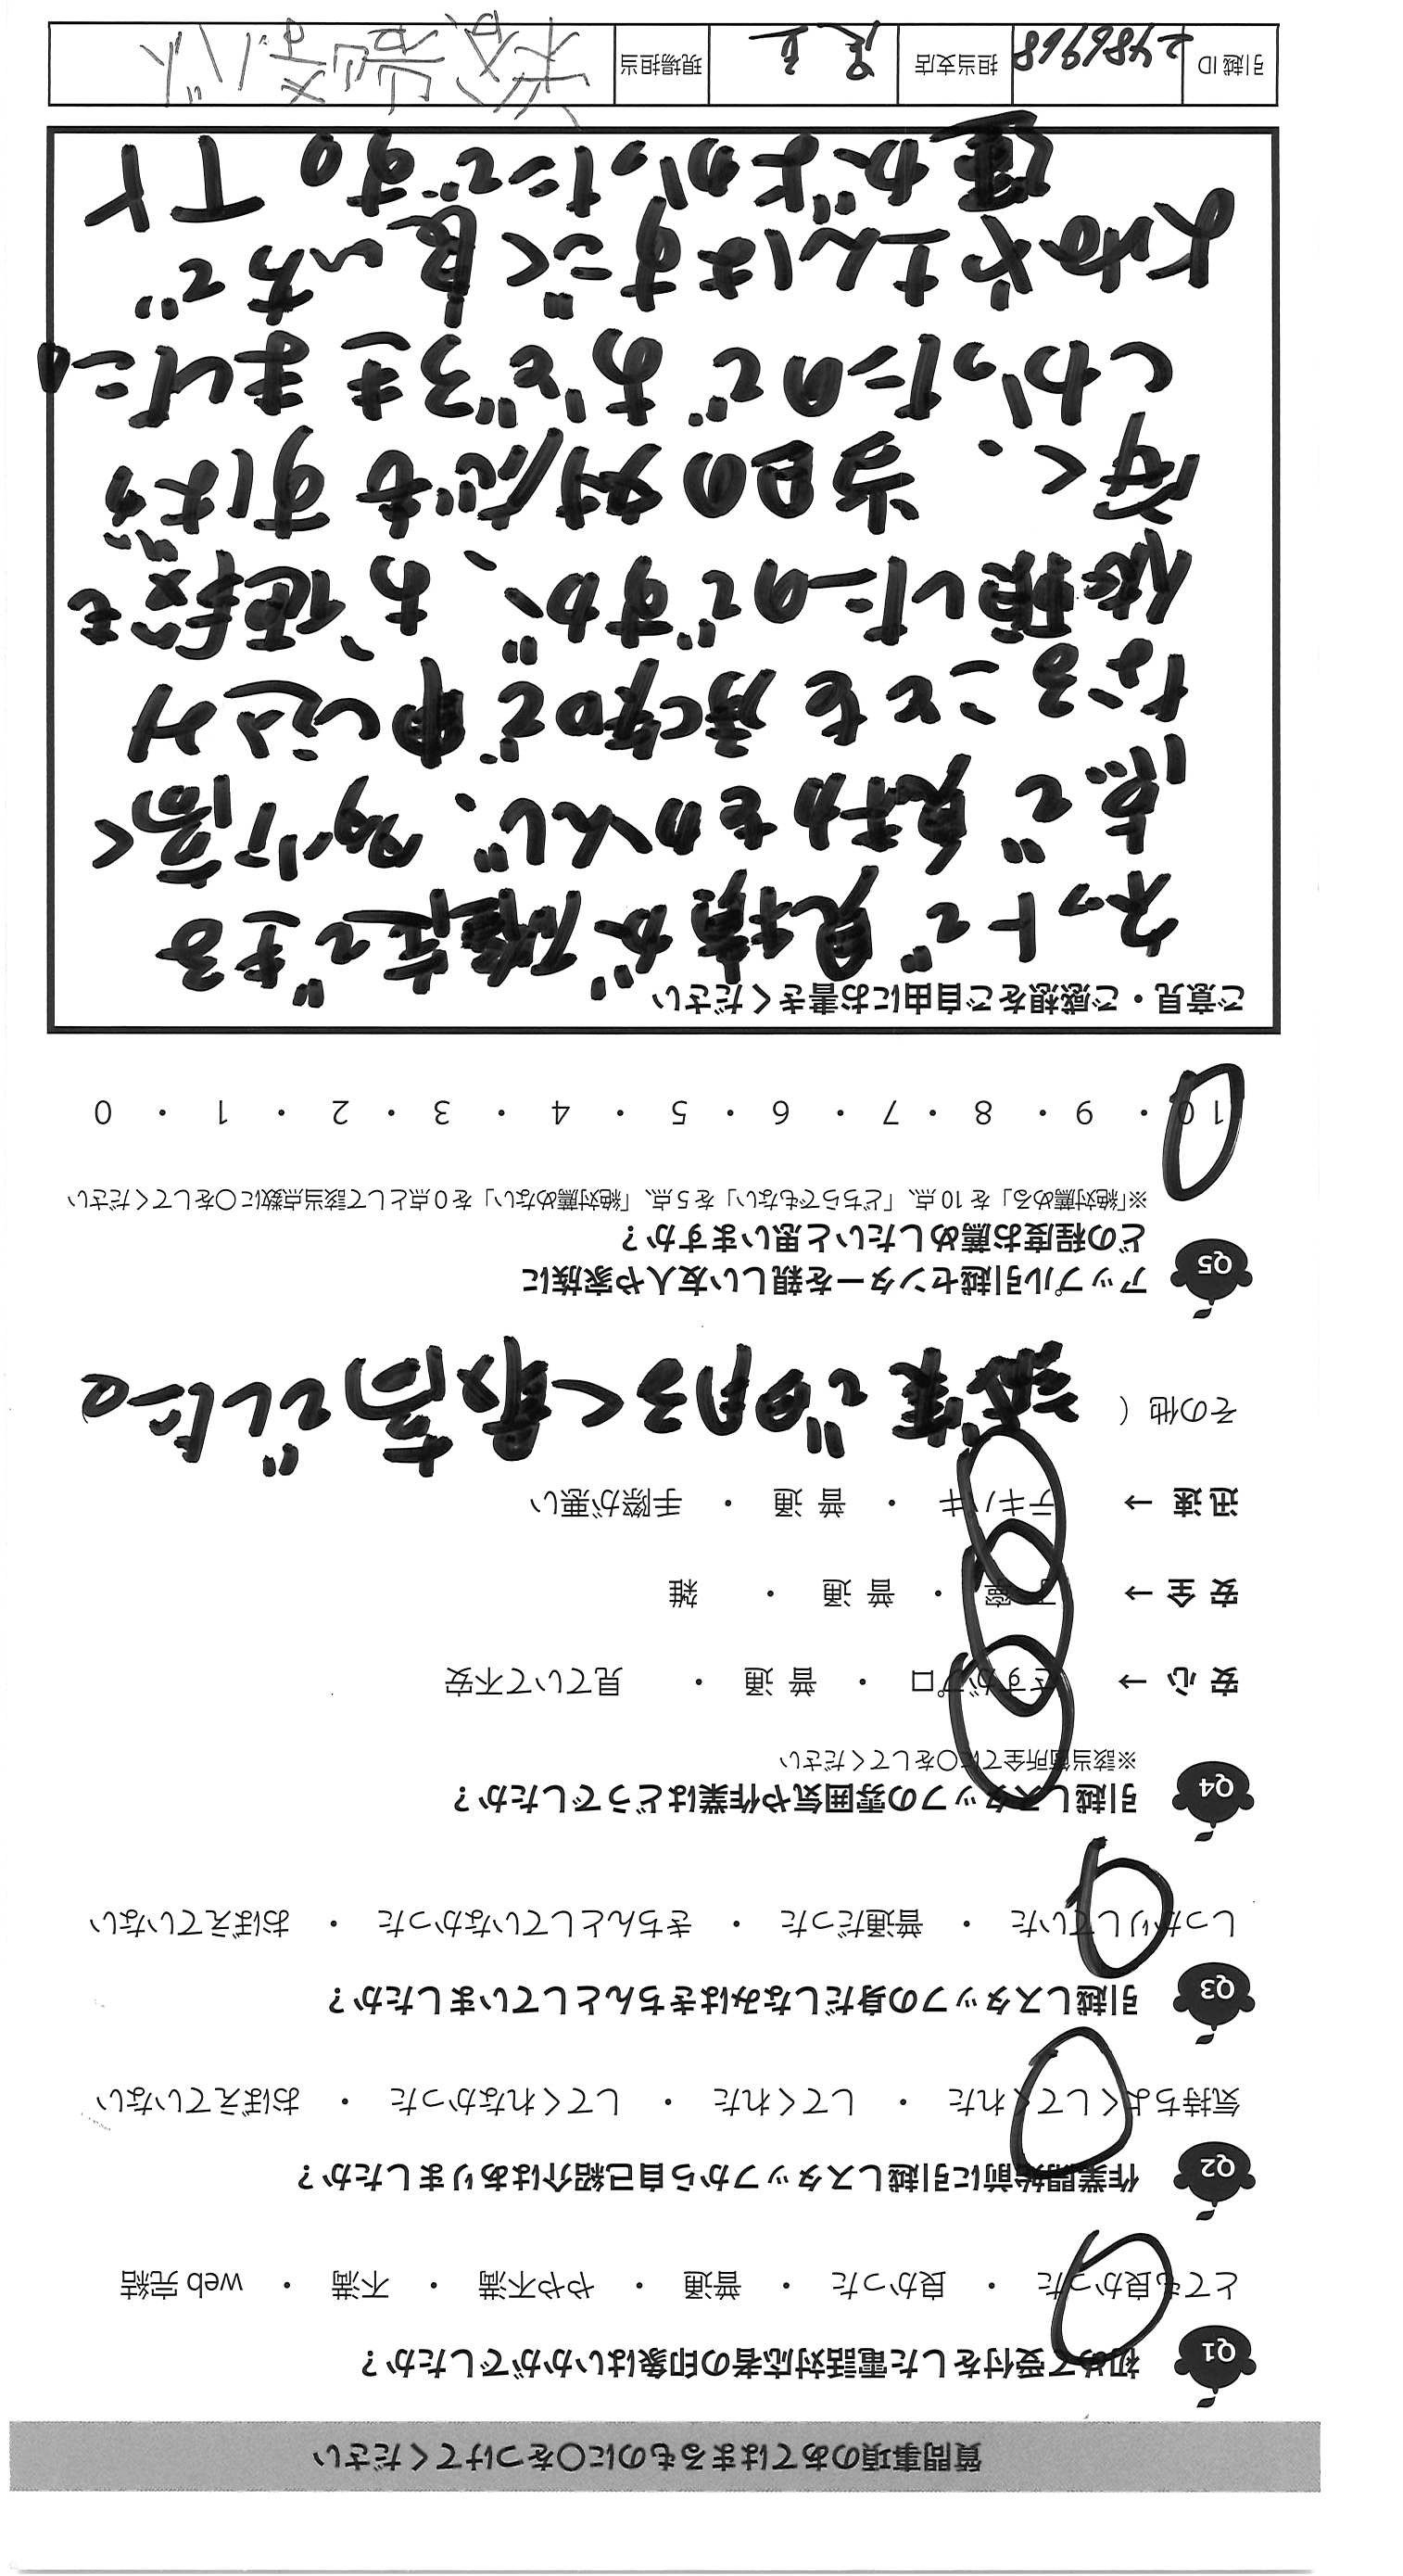 質問事項のあてはまるものに○をつけてください
Q1 初めて受付をした電話対応者の印象はいかがでしたか？
とても良かった ・ 良かった ・ 普通 ・ やや不満 ・ 不満 ・ web 完結
Q2 作業開始前に引越しスタッフから自己紹介はありましたか？
気持ちよくしてくれた ・ してくれた ・ してくれなかった ・ おぼえていない
Q3 引越しスタッフの身だしなみはきちんとしていましたか？
しっかりしていた ・ 普通だった ・ きちんとしていなかった ・ おぼえていない
Q4 引越しスタッフの雰囲気や作業はどうでしたか？
※該当箇所全てに○をしてください
安心 → さすがプロ ・ 普通 ・ 見ていて不安
安全 → 丁寧 ・ 普通 ・ 雑
迅速 → テキパキ ・ 普通 ・ 手際が悪い
その他（ 誠実で明るく最高でした。
Q5 アップル引越センターを親しい友人や家族に
どの程度お薦めしたいと思いますか？
※「絶対薦める」を 10 点、「どちらでもない」を 5 点、「絶対薦めない」を 0 点として該当点数に○をしてください
10 ・ 9 ・ 8 ・ 7 ・ 6 ・ 5 ・ 4 ・ 3 ・ 2 ・ 1 ・ 0
ご意見・ご感想をご自由にお書きください
ネットで見積が確定できる
点で魅力をかんじ、多少高く
なることも承知で申し込み
依頼したのですが、お値段も
安く、当日の対応もすばら
しかったのでおどろきました。
大畑さんはすごく良い方で
運がよかったです。 TY
引越 ID 2486968 担当支店 現場担当